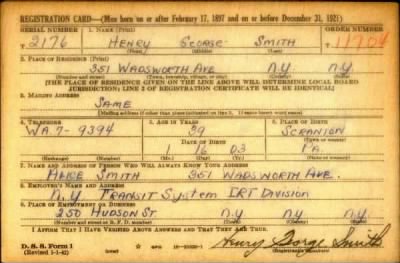 REGISTRATION CARD—(Men born on or after February 17, 1897 and on or before December 31, 1921)
SERIAL NUMBER 1. NAME (Print) ORDER NUMBER
T 2176 HENRY GEORGE SMITH 11904
(First) (Middle) (Last)
2. PLACE OF RESIDENCE (Print)
351 WADSWORTH AVE N.Y. N.Y.
(Number and street) (Town, township, village, or city) (County) (State)
[THE PLACE OF RESIDENCE GIVEN ON THE LINE ABOVE WILL DETERMINE LOCAL BOARD
JURISDICTION; LINE 2 OF REGISTRATION CERTIFICATE WILL BE IDENTICAL]
3. MAILING ADDRESS
SAME
[Mailing address if other than place indicated on line 2. If same insert word same]
4. TELEPHONE 5. AGE IN YEARS 6. PLACE OF BIRTH
WA. 7- 9394 39 SCRANTON
DATE OF BIRTH (Town or county)
1 16 03 PA.
(Exchange) (Number) (Mo.) (Day) (Yr.) (State or country)
7. NAME AND ADDRESS OF PERSON WHO WILL ALWAYS KNOW YOUR ADDRESS
ALICE SMITH 351 WADSWORTH AVE.
8. EMPLOYER'S NAME AND ADDRESS
N.Y TRANSIT SYSTEM IRT DIVISION
9. PLACE OF EMPLOYMENT OR BUSINESS
250 HUDSON ST. N.Y N.Y.
(Number and street or R. F. D. number) (Town) (County) (State)
I AFFIRM THAT I HAVE VERIFIED ABOVE ANSWERS AND THAT THEY ARE TRUE.
D. S. S. Form 1
(Revised 1-1-42) (over) Henry George Smith
(Registrant's signature)